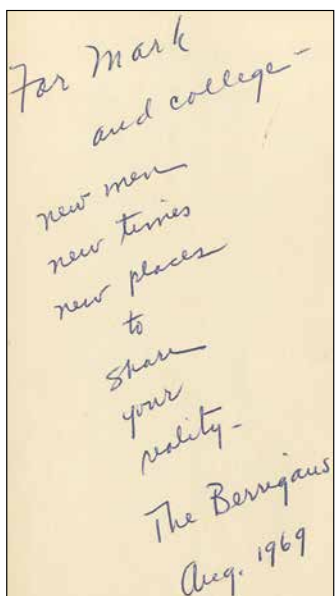 For Mark
and college—
new men
new times
new places
to
share
your
reality—
The Berrigans
Aug. 1969